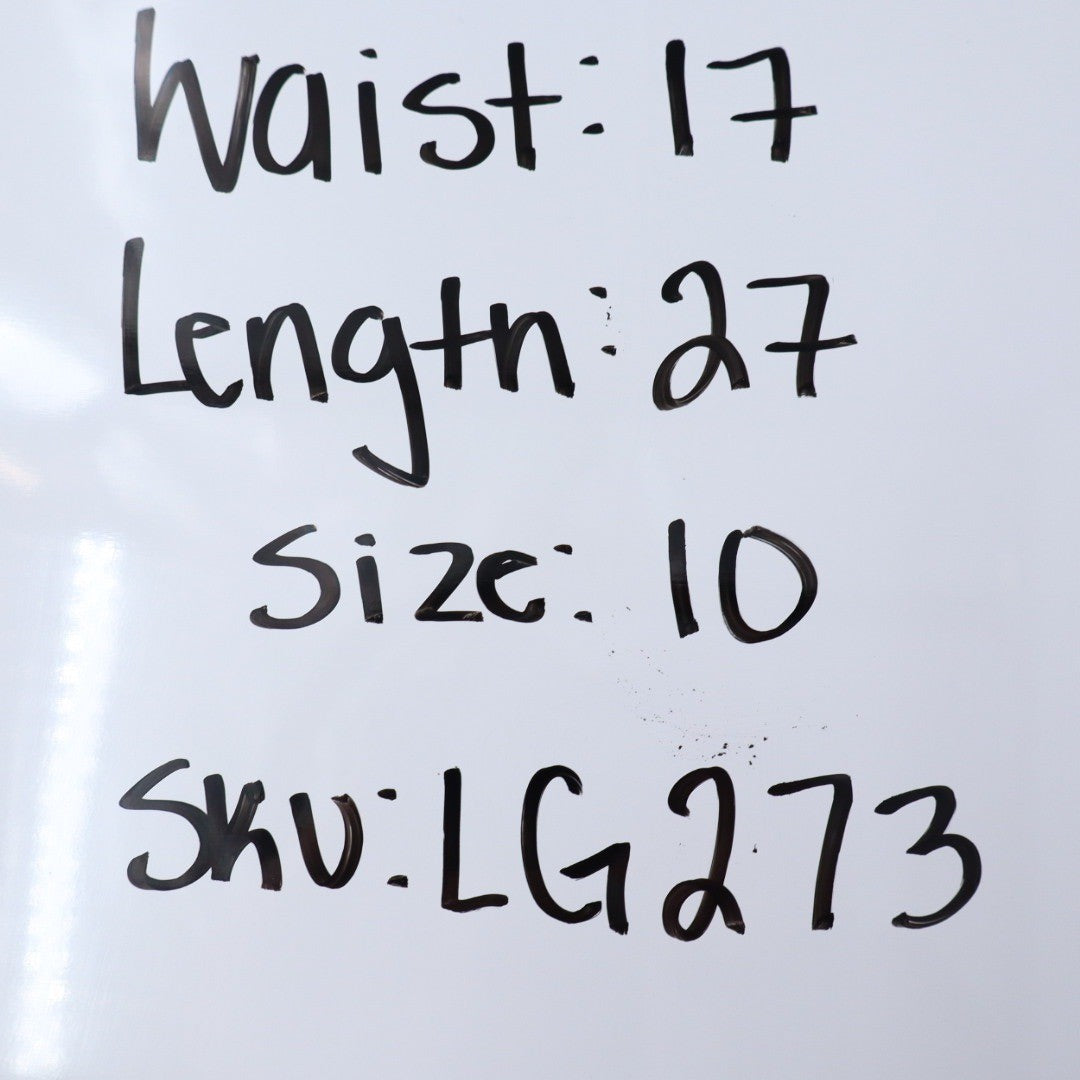 Waist: 17
Length: 27
Size: 10
SKU: LG273